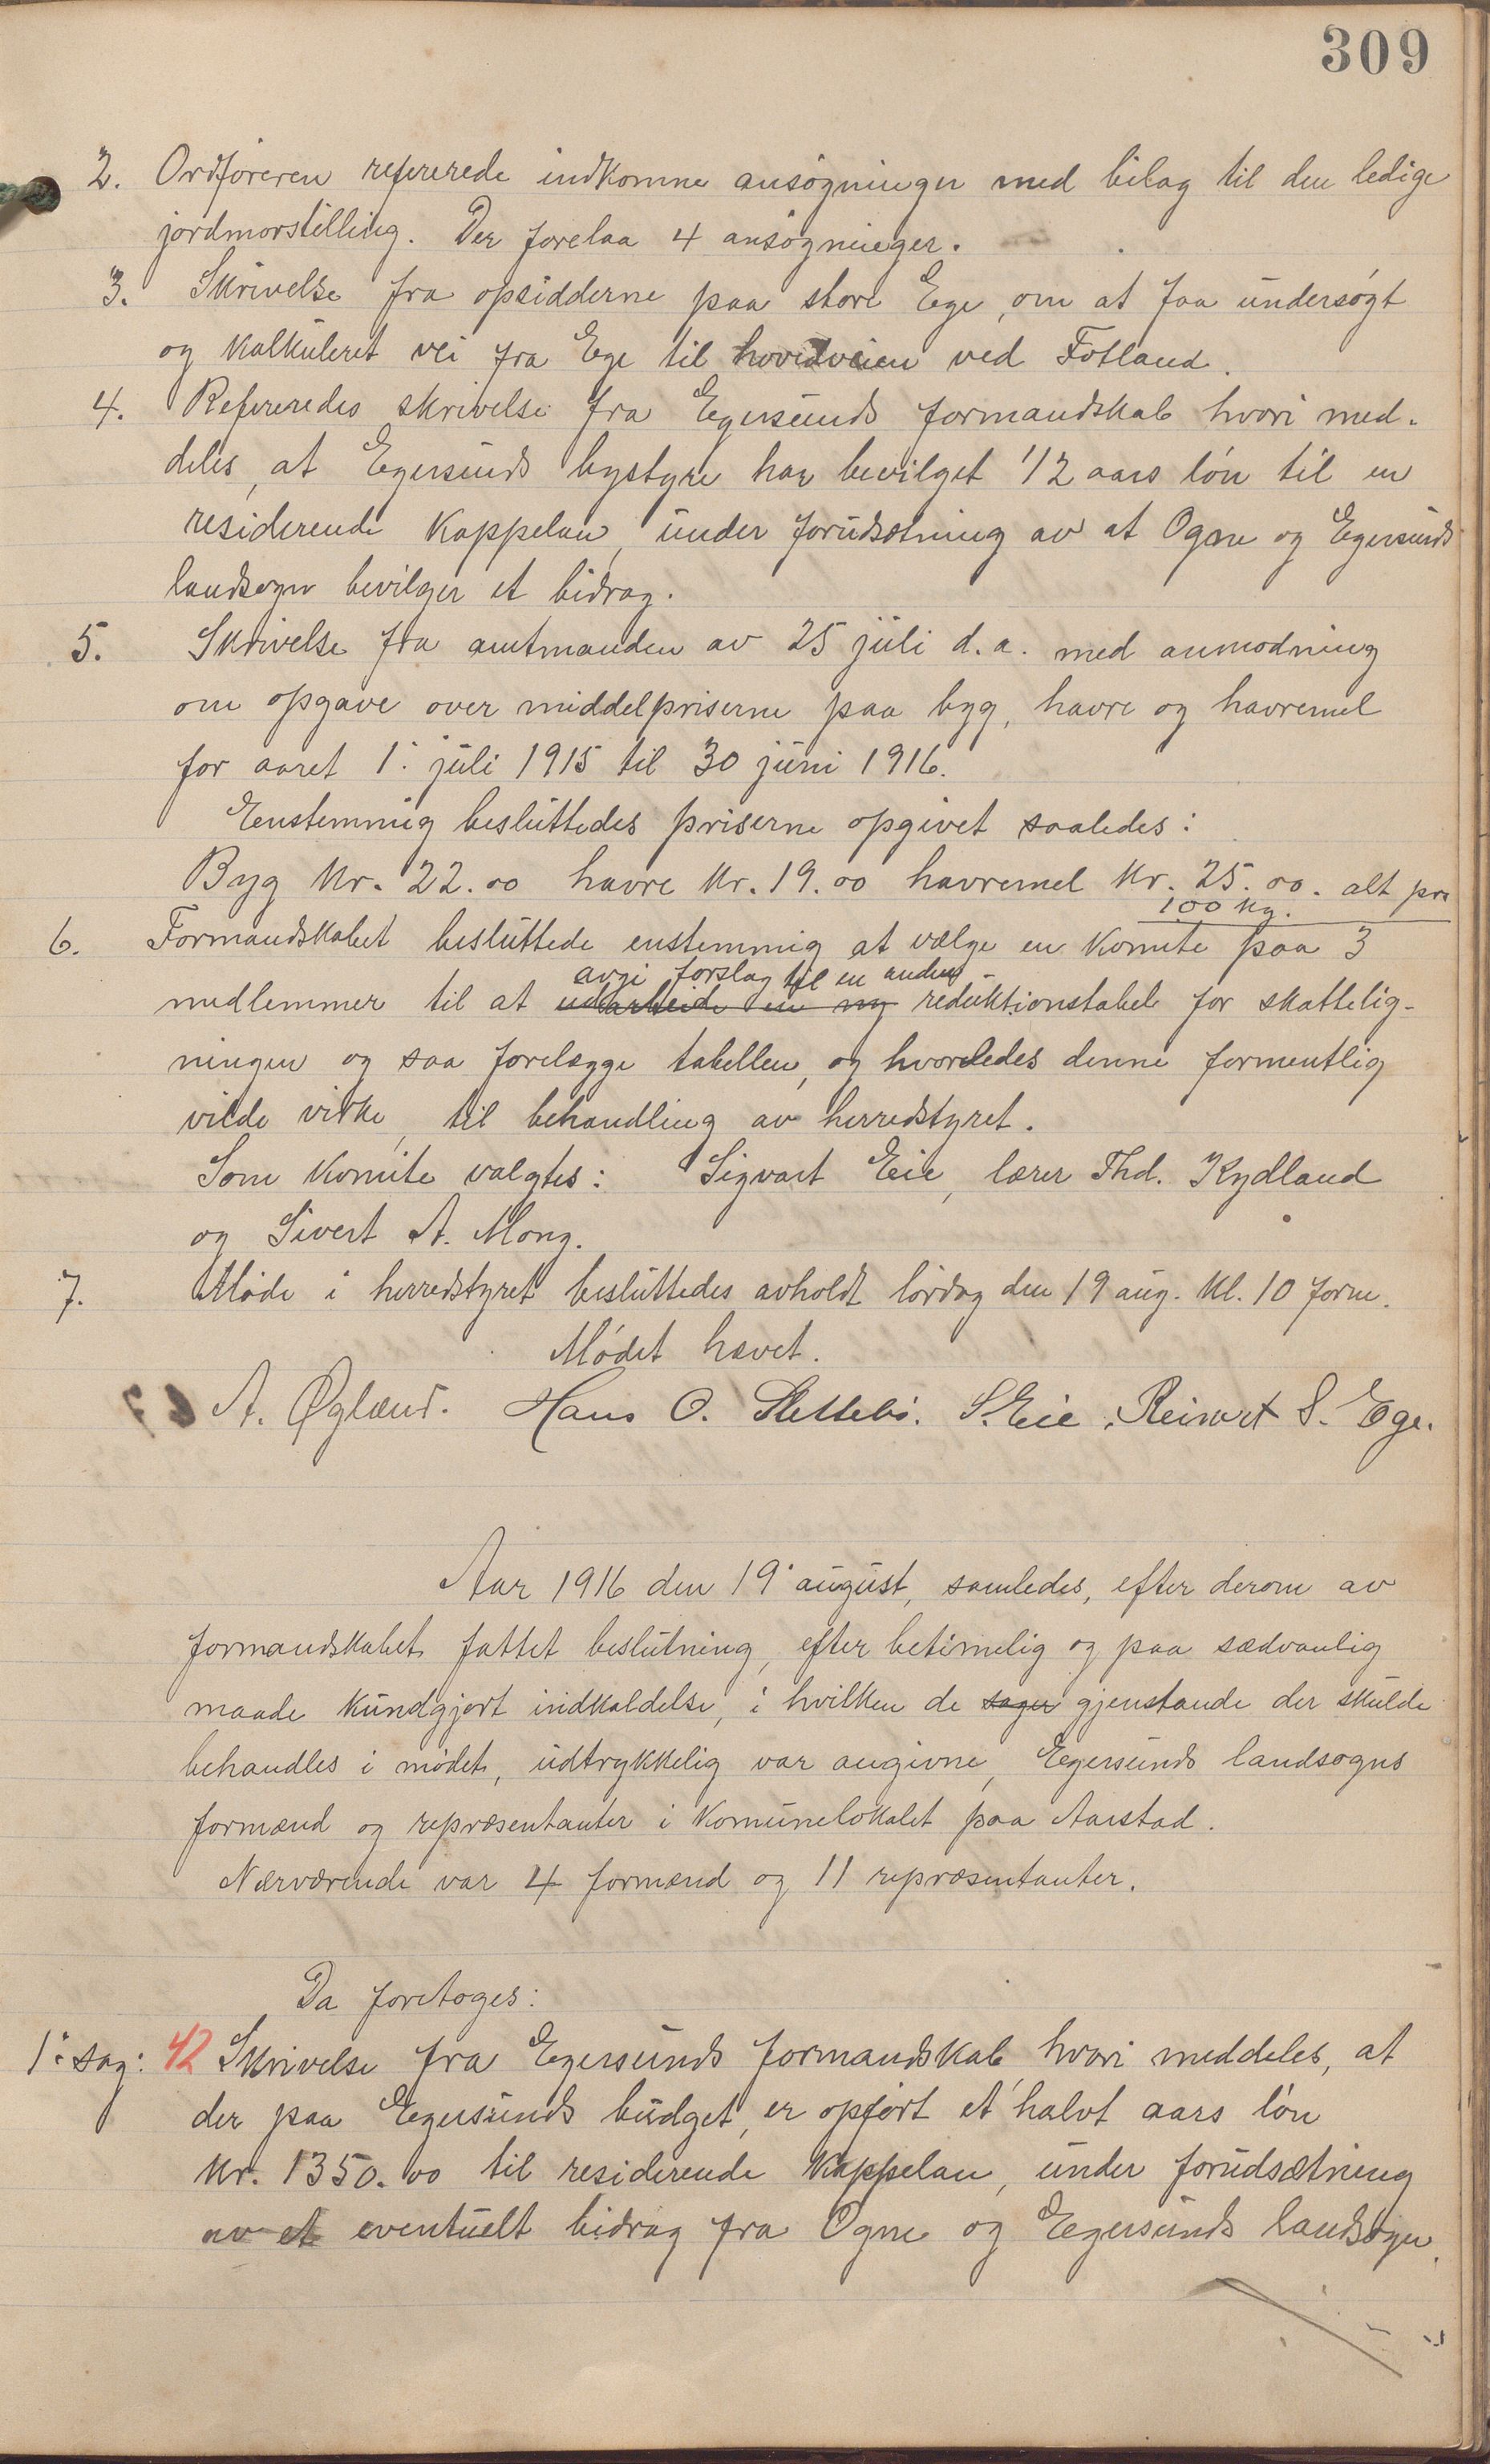 309
2. Ordføreren refererede indkomne ansøgninger med bilag til den ledige
jordmorstilling. Der forelaa 4 ansøgninger.
3. Skrivelse fra opsidderne paa store Ege, om at faa undersøgt
og kalkuleret vei fra Ege til hovedveien ved Fotland.
4. Refereredes skrivelse fra Egersunds formandskab hvori med-
deles, at Egersunds bystyre har bevilget 1/2 aars løn til en
residerende kappelan, under forudsætning av at Ogne og Egersunds
landsogn bevilger et bidrag.
5. Skrivelse fra amtmanden av 25 juli d.a. med anmodning
om opgave over middelpriserne paa byg, havre og havremel
for aaret 1. juli 1915 til 30 juni 1916.
Eenstemmig besluttedes priserne opgivet saaledes:
Byg kr. 22.00 havre kr. 19.00 havremel kr. 25.00. alt pr.
100 kg.
6. Formandskabet besluttede enstemmig at vælge en komite paa 3
avgi forslag til en anden
medlemmer til at udarbeide en ny reduktionstabel for skattelig-
ningen og saa forelægge tabellen, og hvorledes denne formentlig
vilde virke, til behandling av herredstyret.
Som komite valgtes: Sigvart Eie, lærer Thd. Kydland
og Sivert A. Mong.
7. Møde i herredstyret besluttedes avholdt lørdag den 19 aug. kl. 10 form.
Mødet hævet.
A. Øglænd. Hans O. Slettebø. S. Eie. Reinert S. Ege.
Aar 1916 den 19. august, samledes, efter derom av
formandskabet fattet beslutning, efter betimelig og paa sædvanlig
maade kundgjort indkaldelse, i hvilken de sager gjenstande der skulde
behandles i mødet, udtrykkelig var angivne, Egersunds landsogns
formænd og repræsentanter i komunelokalet paa Aarstad.
Nærværende var 4 formænd og 11 repræsentanter.
Da foretoges:
1. sag: 42 Skrivelse fra Egersunds formandskab hvori meddeles, at
der paa Egersunds budget, er opført et halvt aars løn
kr. 1350.00 til residerende kappelan, under forudsætning
av et eventuelt bidrag fra Ogne og Egersunds landsogn.